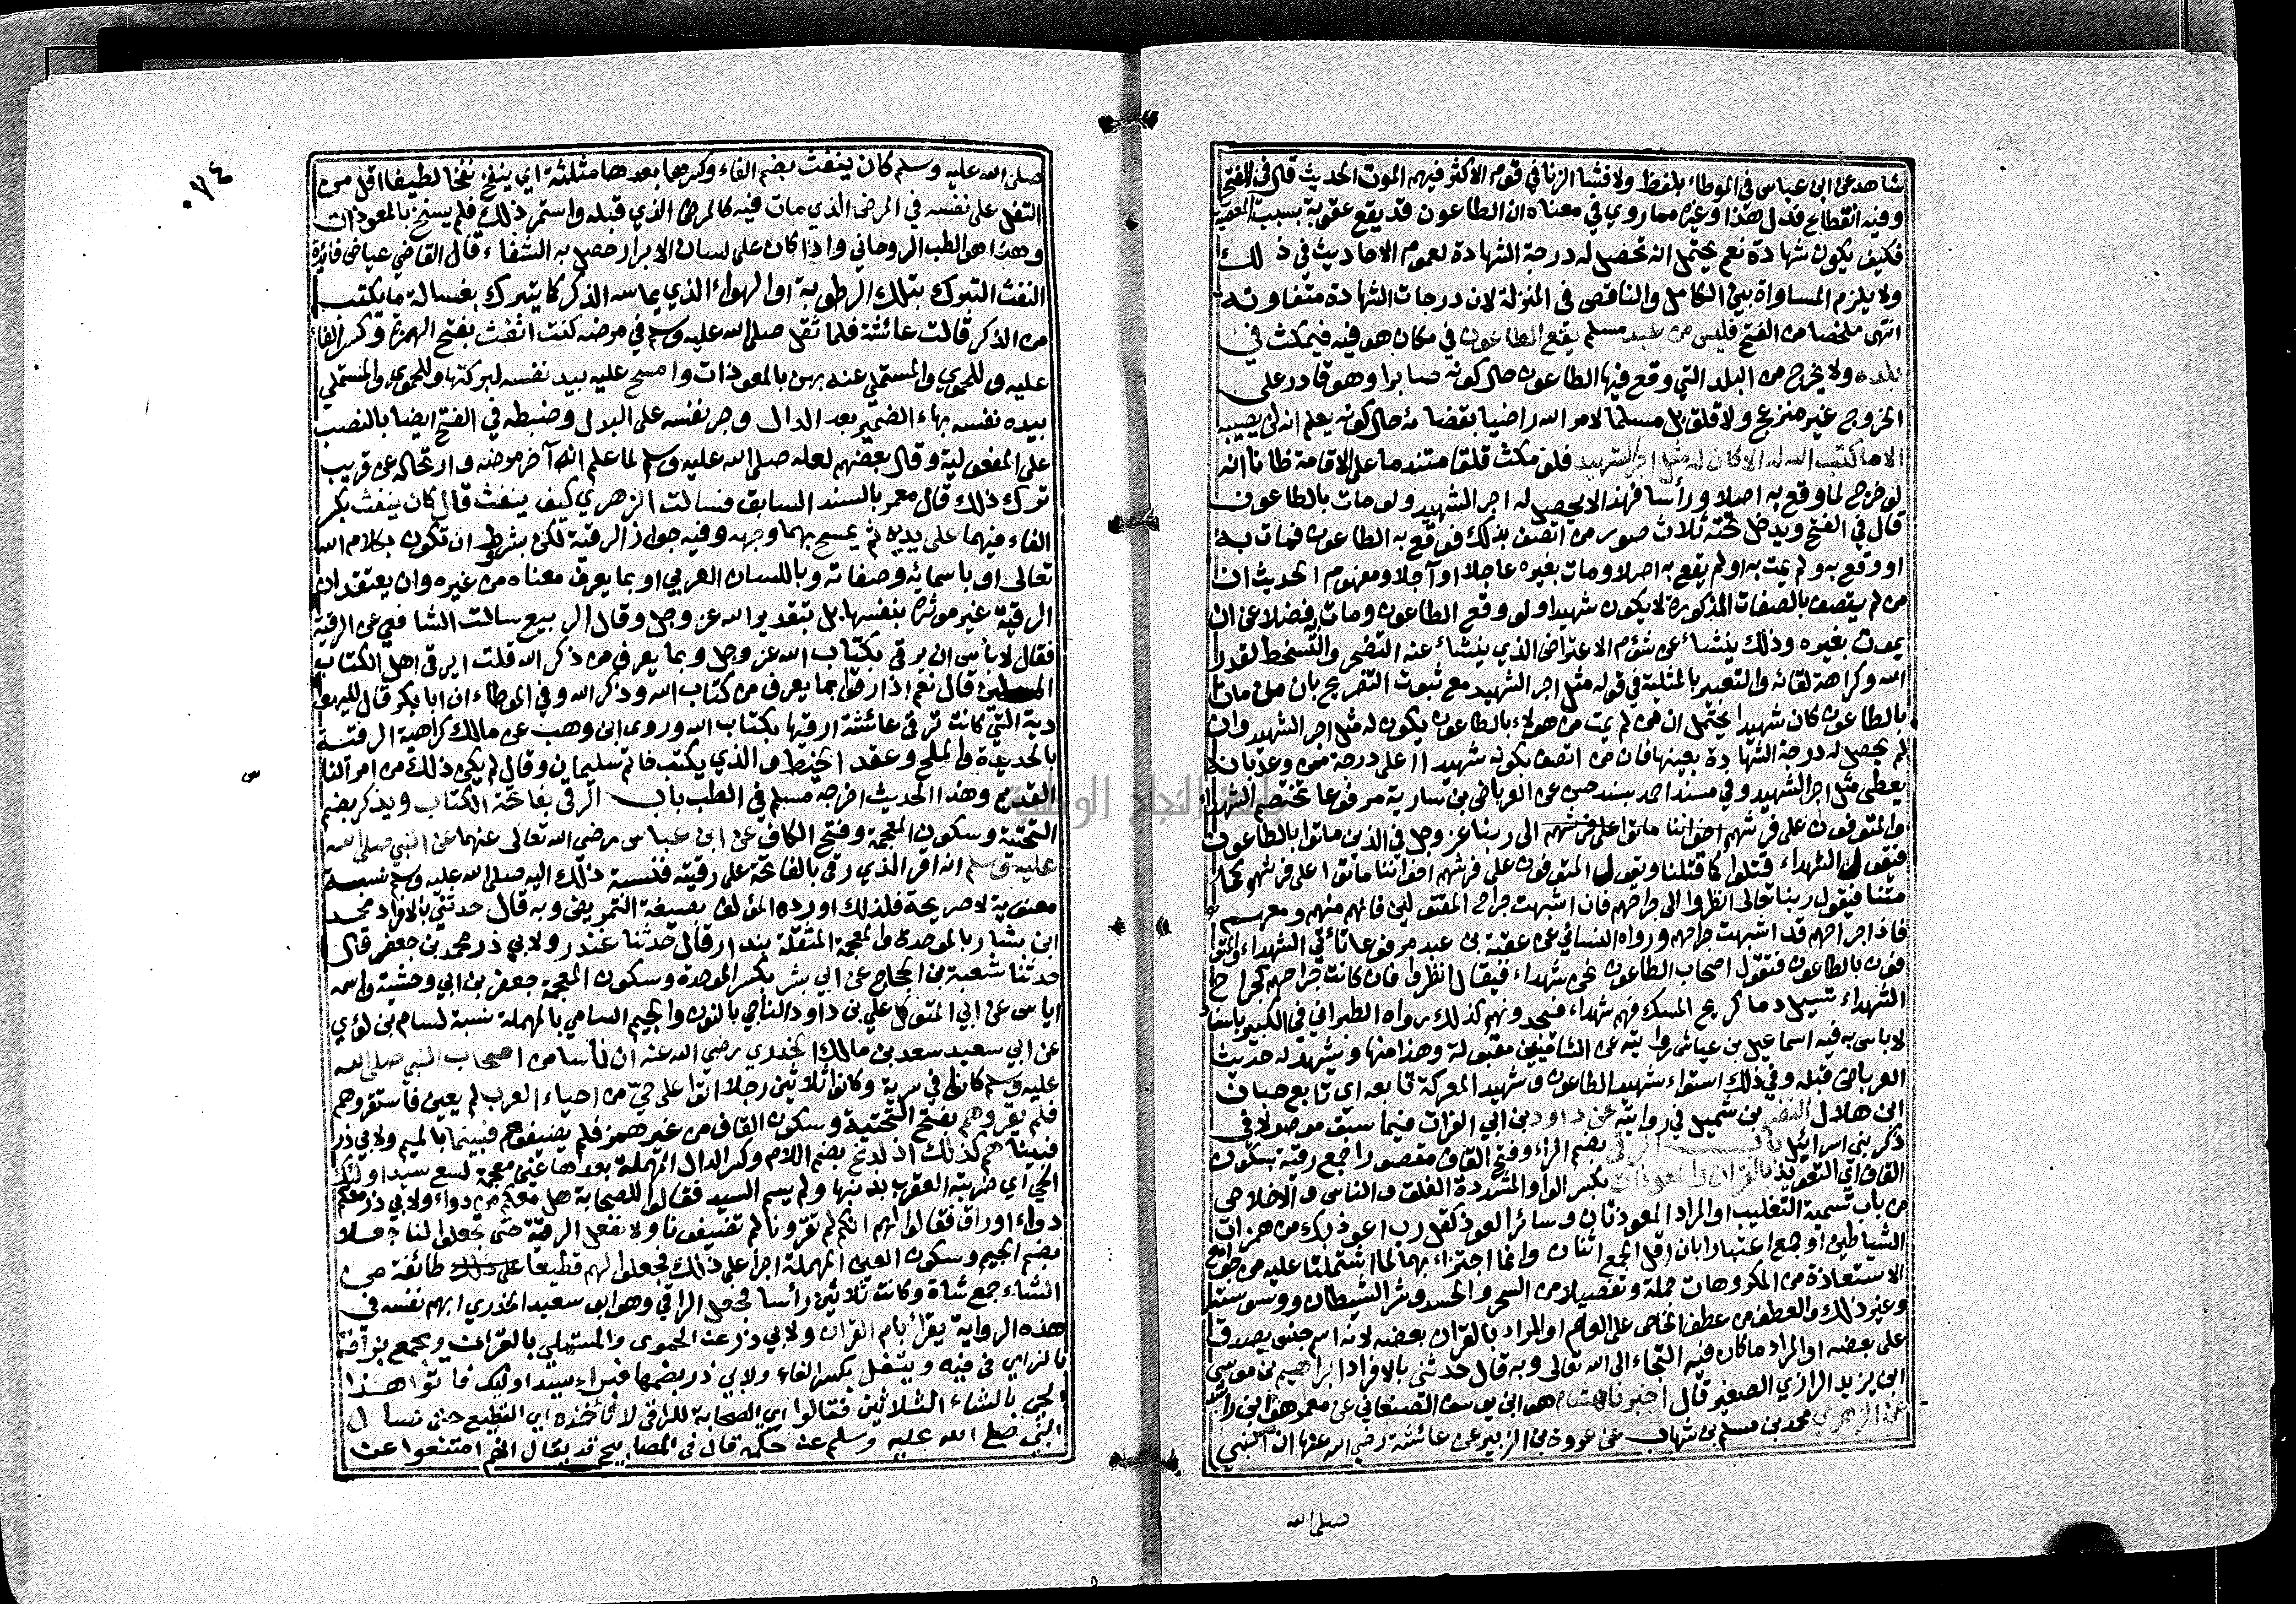 شاهد عن ابن عباس في الموطاء بلفظ ولا فشا الزنا في قوم الا كثر فيهم الموت الحديث قال في الفتح
وفيه انقطاع فدل هذا وغيره مما روي في معناه ان الطاعون قد يقع عقوبة بسبب المعصية
فكيف يكون شهادة نعم يحتمل انه تحصل له درجة الشهادة لعموم الاحاديث في ذلك
ولا يلزم المساواة بين الكامل والناقص في المنزلة لان درجات الشهادة متفاوتة
انتهى ملخصا من الفتح فليس من عبد مسلم يقع الطاعون في مكان هو فيه فيمكث في
بلده ولا يخرج من البلد التي وقع فيها الطاعون حال كونه صابرا وهو قادر على
الخروج غير منزعج ولا قلق بل مسلما لامر الله راضيا بقضائه حال كونه يعلم انه لن يصيبه
الا ما كتب الله له الا كان له مثل اجر الشهيد فلو مكث قلقا متندما على الاقامة ظانا انه
لو خرج لما وقع به اصلا ورأسا فهذا لا يحصل له اجر الشهيد ولو مات بالطاعون
قال في الفتح ويدخل تحته ثلاث صور من اتصف بذلك فوقع به الطاعون فمات به
او وقع به ولم يمت به او لم يقع به اصلا ومات بغيره عاجلا او آجلا ومفهوم الحديث ان
من لم يتصف بالصفات المذكورة لا يكون شهيدا ولو وقع الطاعون ومات به فضلا عن ان
يموت بغيره وذلك ينشاء عن شؤم الاعتراض الذي ينشاء عنه التضجر والتسخط لقدر
الله وكراهة لقائه والتعبير بالمثلية في قوله مثل اجر الشهيد مع ثبوت التصريح بان من مات
بالطاعون كان شهيدا يحتمل ان من لم يمت من هولاء بالطاعون يكون له مثل اجر الشهيد وان
لم يحصل له درجة الشهادة بعينها فان من اتصف بكونه شهيدا اعلى درجة ممن وعد بانه
يعطى مثل اجر الشهيد وفي مسند احمد بسند حسن عن العرباض بن سارية مرفوعا تختصم الشهداء
والمتوفون على فرشهم الى ربنا عز وجل في الذين ماتوا بالطاعون
فيقول الشهداء قتلوا كما قتلنا ويقول المتوفون على فرشهم اخواننا ماتوا على فرشهم كما
متنا فيقول ربنا تعالى انظروا الى جراحهم فان اشبهت جراح المقتولين فانهم منهم ومعهم
فاذا جراحهم قد اشبهت جراحهم ورواه النسائي عن عقبة بن عبد مرفوعا تأتي الشهداء والمتو
فون بالطاعون فتقول اصحاب الطاعون نحن شهداء فيقال انظروا فان كانت جراحهم كجراح
الشهداء تسيل دما كريح المسك فهم شهداء فيجدونهم كذلك رواه الطبراني في الكبير باسناد
لا باس به فيه اسماعيل بن عياش روايته عن الشاميين مقبولة وهذا منها ويشهد له حديث
العرباض قبله وفي ذلك استواء شهيد الطاعون وشهيد المعركة تابعه اي تابع حبان
ابن هلال النضر بن شميل في روايته عن داود بن ابي الفرات فيما سبق موصولا في
ذكر بني اسرائيل باب الرقى بضم الراء وفتح القاف مقصورا جمع رقية بسكون
القاف اي التعويذ بالقران والمعوذات بكسر الواو المشددة الفلق والناس والاخلاص
من باب تسمية التغليب او المراد المعوذتان وسائر العوذ كقل رب اعوذ بك من همزات
الشياطين او جمع اعتبارا بان اقل الجمع اثنان وانما اجتزاء بهما لما اشتملتا عليه من جوامع
الاستعاذة من المكروهات جملة وتفصيلا من السحر والحسد وشر الشيطان ووسوسته
وغير ذلك والعطف من عطف الخاص على العام او المراد بالقران بعضه لانه اسم جنس يصدق
على بعضه او المراد ما كان فيه التجاء الى الله تعالى وبه قال حدثني بالافراد ابراهيم بن موسى
ابن يزيد الرازي الصغير قال اخبرنا هشام هو ابن يوسف الصنعاني عن معمر هو ابن راشد
عن الزهري محمد بن مسلم بن شهاب عن عروة بن الزبير عن عائشة رضي الله عنها ان النبي
صلى الله
صلى الله عليه وسلم كان ينفث بضم الفاء وكسرها بعدها مثلثة اي ينفخ نفخا لطيفا اقل من
التفل على نفسه في المرض الذي مات فيه كالمرض الذي قبله واستمر ذلك فلم ينسخ بالمعوذات
وهذا هو الطب الروحاني واذا كان على لسان الابرار حصل به الشفاء قال القاضي عياض فائدة
النفث التبرك بتلك الرطوبة او الهواء الذي يماسه الذكر كما يتبرك بغسالة ما يكتب
من الذكر قالت عائشة فلما ثقل صلى الله عليه وسلم في مرضه كنت انفث بفتح الهمزة وكسر الفاء
عليه وللحموي والمستملي عنه بهن بالمعوذات وامسح عليه بيد نفسه لبركتها وللحموي والمستملي
بيده نفسه بهاء الضمير بعد الدال وجر نفسه على البدل وضبطه في الفتح ايضا بالنصب
على المفعولية وقال بعضهم لعله صلى الله عليه وسلم لما علم انه آخر مرضه وارتحاله عن قريب
ترك ذلك قال معمر بالسند السابق فسالت الزهري كيف ينفث قال كان ينفث بكسر
الفاء فيهما على يديه ثم يمسح بهما وجهه وفيه جواز الرقية لكن بشروط ان تكون بكلام الله
تعالى او باسمائه وصفاته وباللسان العربي او بما يعرف معناه من غيره وان يعتقد ان
الرقية غير موثرة بنفسها بل بتقدير الله عز وجل وقال الربيع سالت الشافعي عن الرقية
فقال لا بأس ان يرقى بكتاب الله عز وجل وبما يعرف من ذكر الله قلت ايرقى اهل الكتاب
المسلمين قال نعم اذا رقوا بما يعرف من كتاب الله وذكر الله وفي الموطاء ان ابا بكر قال لليهو
دية التي كانت ترقى عائشة ارقيها بكتاب الله وروى ابن وهب عن مالك كراهية الرقية
بالحديدة والملح وعقد الخيط والذي يكتب خاتم سليمان وقال لم يكن ذلك من امر النا
القديم وهذا الحديث اخرجه مسلم في الطب باب الرقى بفاتحة الكتاب ويذكر بضم
التحتية وسكون المعجمة وفتح الكاف عن ابن عباس رضي الله تعالى عنهما عن النبي صلى الله
عليه وسلم انه اقر الذي رقى بالفاتحة على رقيته فنسبة ذلك اليه صلى الله عليه وسلم نسبة
معنوية لا صريحة فلذلك اورده المؤلف بصيغة التمريض وبه قال حدثني بالافراد محمد
ابن بشار بالموحدة والمعجمة المثقلة بندار قال حدثنا غندر ولابي ذر محمد بن جعفر قال
حدثنا شعبة بن الحجاج عن ابي بشر بكسر الموحدة وسكون المعجمة جعفر بن ابي وحشية واسمه
اياس عن ابي المتوكل علي بن داود الناجي بالنون والجيم السامي بالمهملة نسبة لسام بن لؤي
عن ابي سعيد سعد بن مالك الخدري رضي الله عنه ان ناسا من اصحاب النبي صلى الله
عليه وسلم كانوا في سرية وكانوا ثلاثين رجلا اتوا على حيّ من احياء العرب لم يعين فاستقروهم
فلم يقروهم بفتح التحتية وسكون القاف من غير همز فلم يضيفوهم فبينما بالميم ولابي ذر
فبينا هم كذلك اذ لدغ بضم اللام وكسر الدال المهملة بعدها غين معجمة لسع سيد اولئك
الحي اي ضربته العقرب بذنبها ولم يسم السيد فقالوا للصحابة هل معكم من دواء ولابي ذر معكم
دواء او راق فقالوا لهم انكم لم تقرونا لم تضيفونا ولا نفعل الرقية حتى تجعلوا لنا جعلا
بضم الجيم وسكون العين المهملة اجرا على ذلك فجعلوا لهم قطيعا على ذلك طائفة من
الشاء جمع شاة وكانت ثلاثين رأسا فجعل الراقي وهو ابو سعيد الخدري ابهم نفسه في
هذه الرواية يقرأ بام القران ولابي ذر عن الحموى والمستملي بالقران ويجمع بزاقه
بالزاي في فيه ويتفل بكسر الفاء ولابي ذر بضمها فبراء سيد اولئك فاتوا هذا
الحي بالشاء الثلاثين فقالوا اي الصحابة للراقي لا نأخذه اي القطيع حتى نسال
النبي صلى الله عليه وسلم عن حكمه قال في المصابيح قد يقال انهم امتنعوا عن